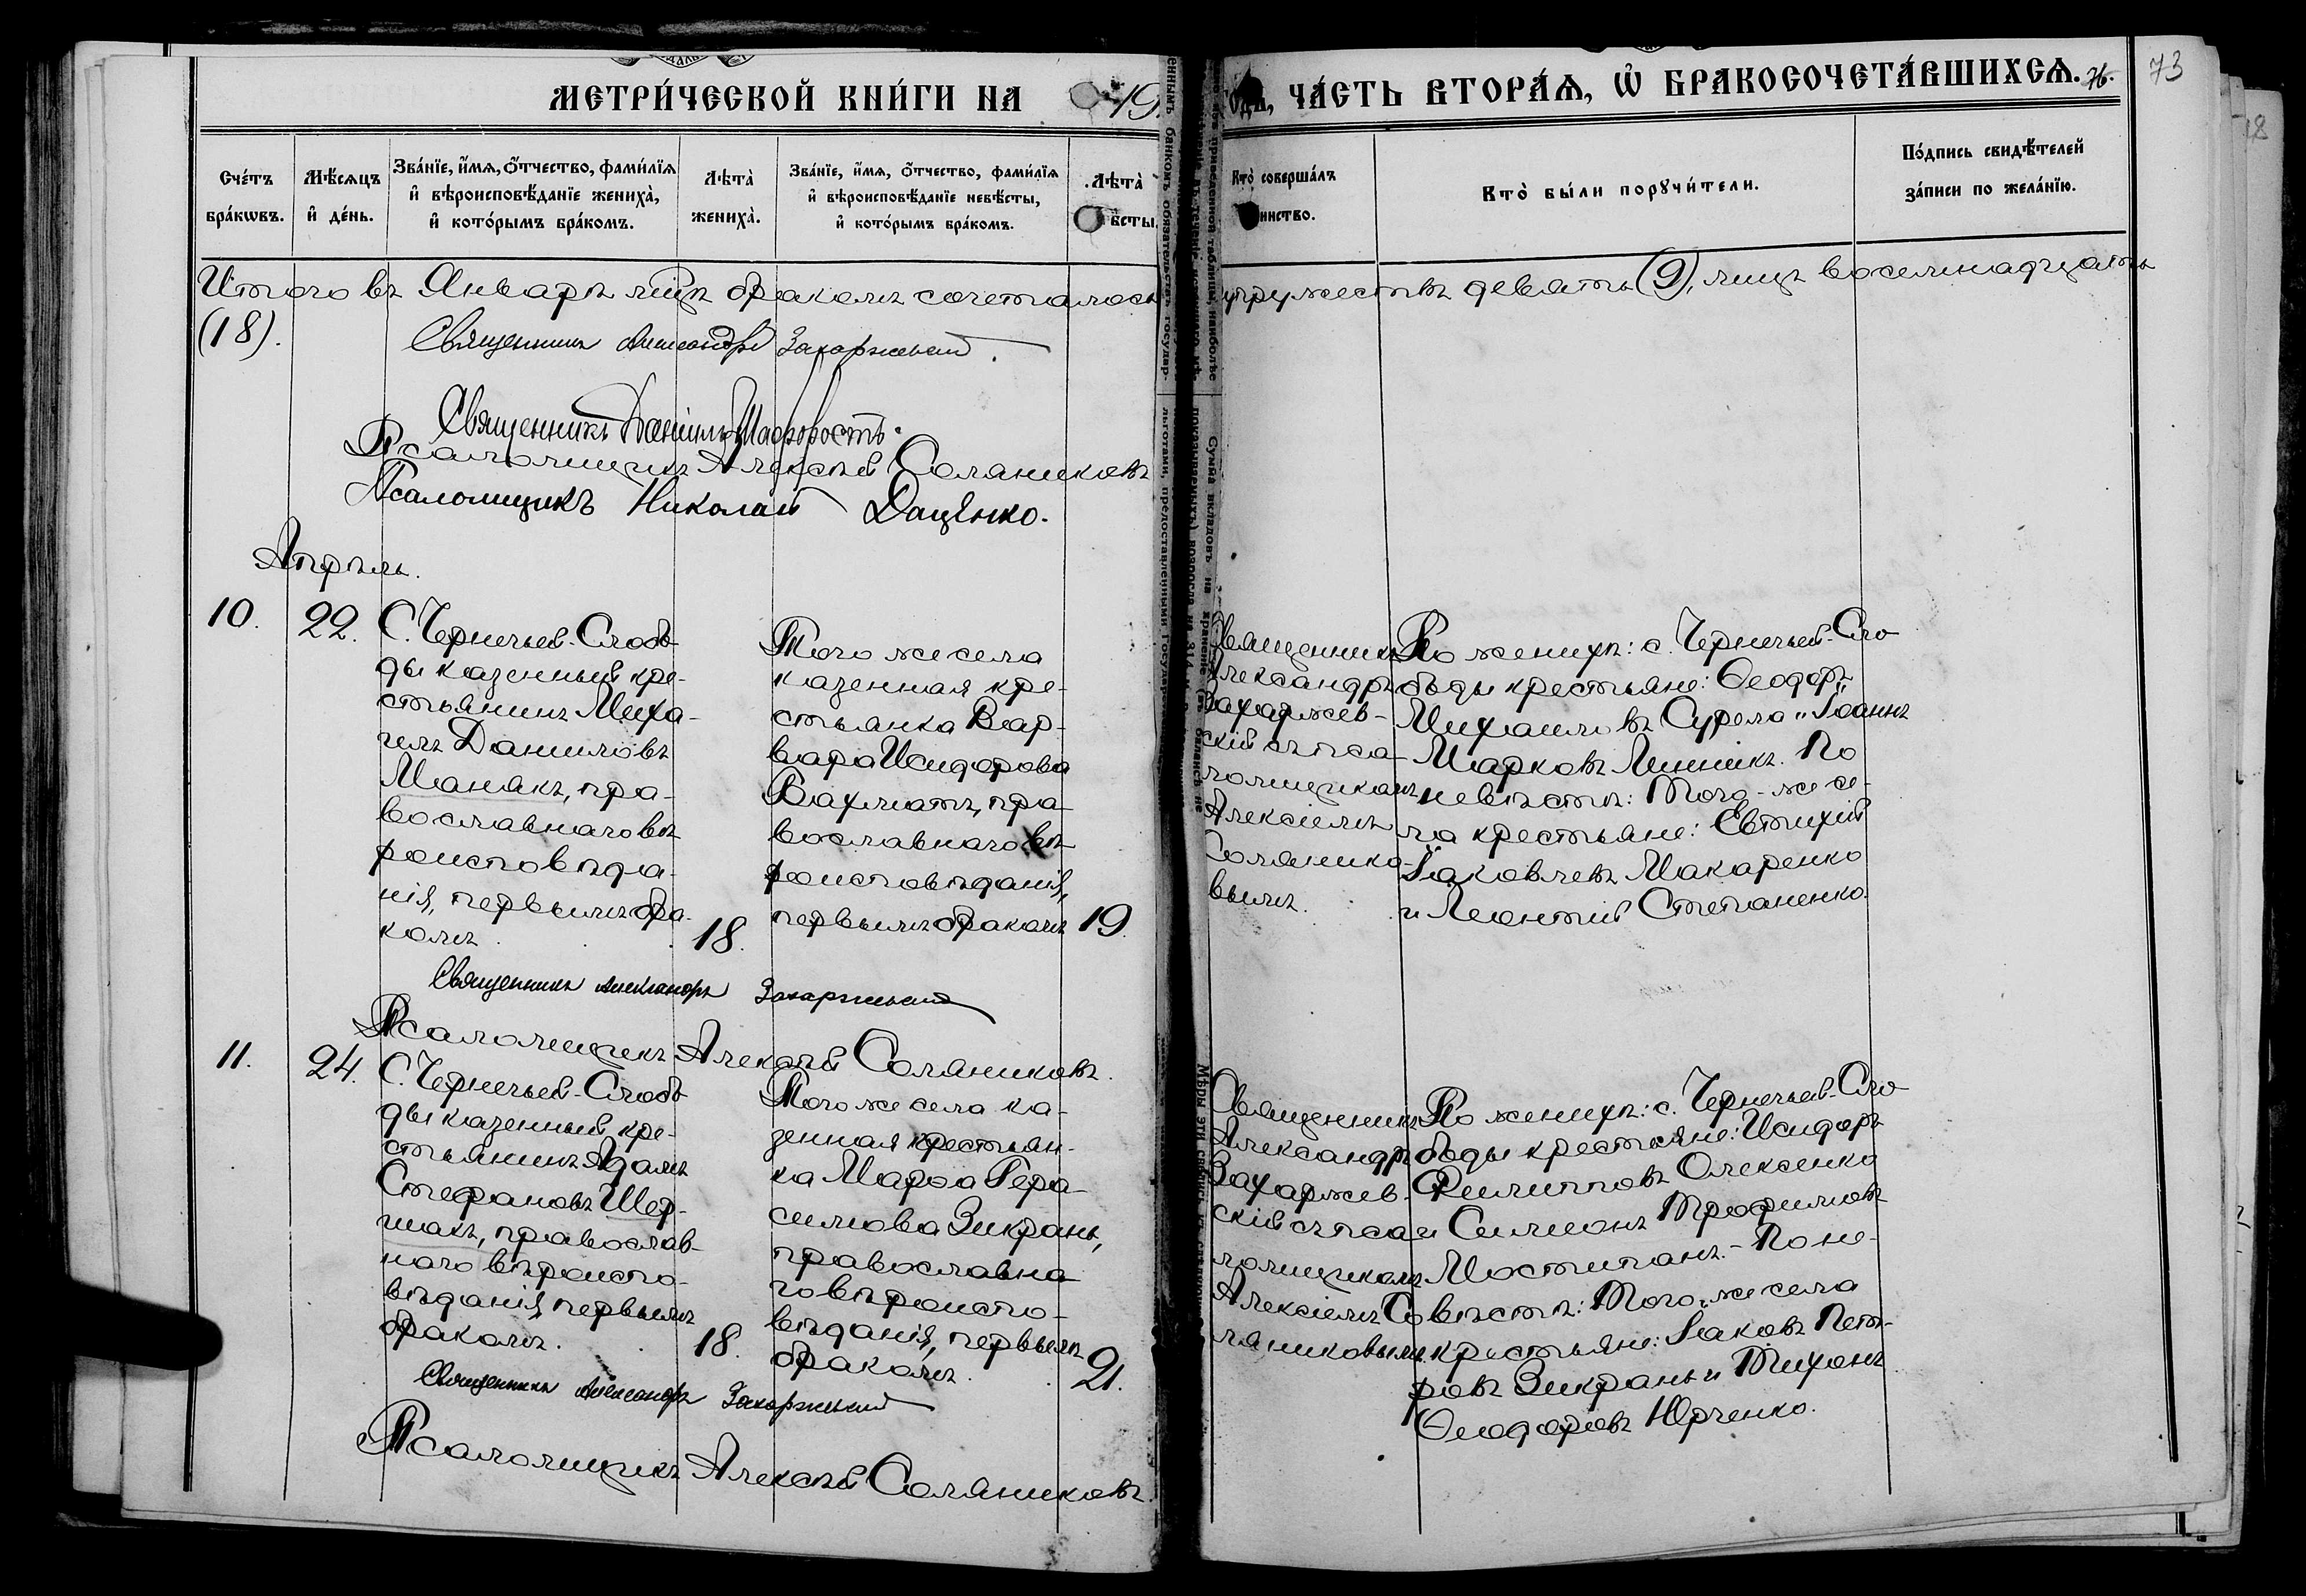 МЕТРИ́ЧЕСКОЙ КНИ́ГИ НА 19
ЧА́СТЬ ВТОРА́Я, Ѡ БРАКОСОЧЕТА́ВШИХСЯ. 76.
73
Сче́тъ бра́кѡвъ.
Мѣ́сяцъ и҆ де́нь.
Зва́нїе, и҆́мя, ѻ҆́тчество, фами́лїя
и҆ вѣроисповѣ́данїе жениха̀,
и҆ кото́рымъ бра́комъ.
Лѣта̀ жениха̀.
Зва́нїе, и҆́мя, ѻ҆́тчество, фами́лїя
и҆ вѣроисповѣ́данїе невѣ́сты,
и҆ кото́рымъ бра́комъ.
Лѣта̀ вѣ́сты
Кто̀ соверша́лъ
инство.
Кто̀ бы́ли порꙋчи́тели.
По́дпись свидѣ́телей
за́писи по жела́нїю.
Итого въ Январѣ мцѣ бракомъ сочеталось супружествъ девять (9), лицъ восемнадцать
(18).
Священникъ Александръ Захаржевскій.
Священникъ Даніилъ
Псаломщикъ Алексѣй Соляниковъ
Псаломщикъ Николай Даценко.
Апрѣль.
10.
22.
С. Чернечьей-Слобо
ды казенный кре-
стьянинъ Миха-
илъ Даниловъ
Манакъ, пра-
вославнаго вѣ
роисповѣда-
нія, первымъ бра-
комъ.
18.
Того же села
казенная кре-
стьянка Вар-
вара Исидорова
Вахматъ, пра
вославнаго вѣ
роисповѣданія,
первымъ бракомъ
19.
Священникъ
Александръ
Захаржев-
скій съ пса-
ломщикомъ
Алексіемъ
Соляныко-
вымъ.
По женихѣ: с. Чернечьей-Сло
боды крестьяне: Ѳеодоръ
Михаиловъ Сурела и Іоаннъ
Марковъ Линникъ. По
невѣстѣ: Того-же се-
ла крестьяне: Евтихій
Іаковлевъ Макаренко
и Леонтій Степаненко.
Священникъ Александръ Захаржевскій
Псаломщикъ Алексѣй Соляниковъ.
11.
24.
С. Чернечьей-Слобо
ды казенный кре-
стьянинъ Адамъ
Стефановъ Шер-
шакъ, православ-
наго вѣроиспо-
вѣданія, первымъ
бракомъ.
18.
Того же села ка-
зенная крестьян-
ка Марѳа Гера-
симова Зикрань,
православна
го вѣроиспо-
вѣданія, первымъ
бракомъ.
21.
Священникъ
Александръ
Захаржев-
скій съ пса-
ломщикомъ
Алексіемъ Со
ляниковымъ.
По женихѣ: с. Чернечьей-Сло
боды крестьяне: Исидоръ
Филипповъ Олексенко
и Симеонъ Трофимовъ
Мостипанъ.- По не-
вѣстѣ: Того-же села
крестьяне: Іаковъ Пет-
ровъ Зикрань и Тихонъ
Ѳеодоровъ Юрченко.
Священникъ Александръ Захаржевскій
Псаломщикъ Алексѣй Соляниковъ.